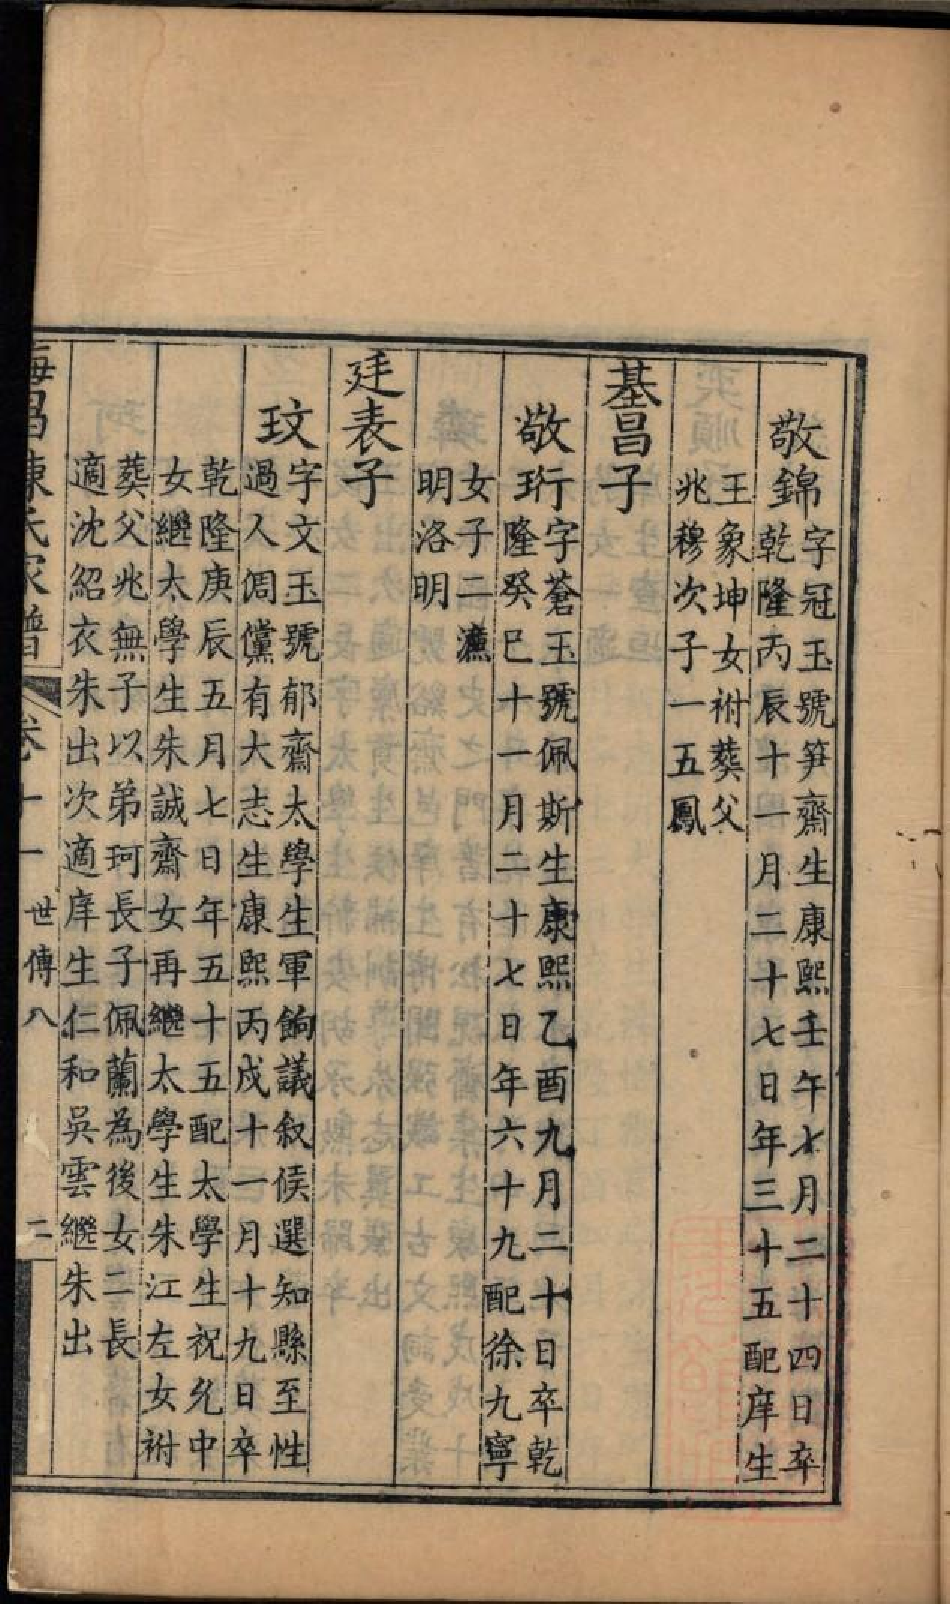 敬錦
字冠玉號笋齋生康熙壬午七月二十四日卒
乾隆丙辰十一月二十七日年三十五配庠生
王象坤女祔葬父
兆穆次子一五鳳
基昌子
敬珩
字蒼玉號佩斯生康熙乙酉九月二十日卒乾
隆癸巳十一月二十七日年六十九配徐九寧
女子二瀍
明洛明
廷表子
玟
字文玉號郁齋太學生軍餉議叙候選知縣至性
過人倜儻有大志生康熙丙戌十一月十九日卒
乾隆庚辰五月七日年五十五配太學生祝允中
女繼太學生朱誠齋女再繼太學生朱江左女祔
葬父兆無子以弟珂長子佩蘭為後女二長
適沈紹衣朱出次適庠生仁和吳雲繼朱出
海昌陳氏家譜 卷十一 世傳八 二